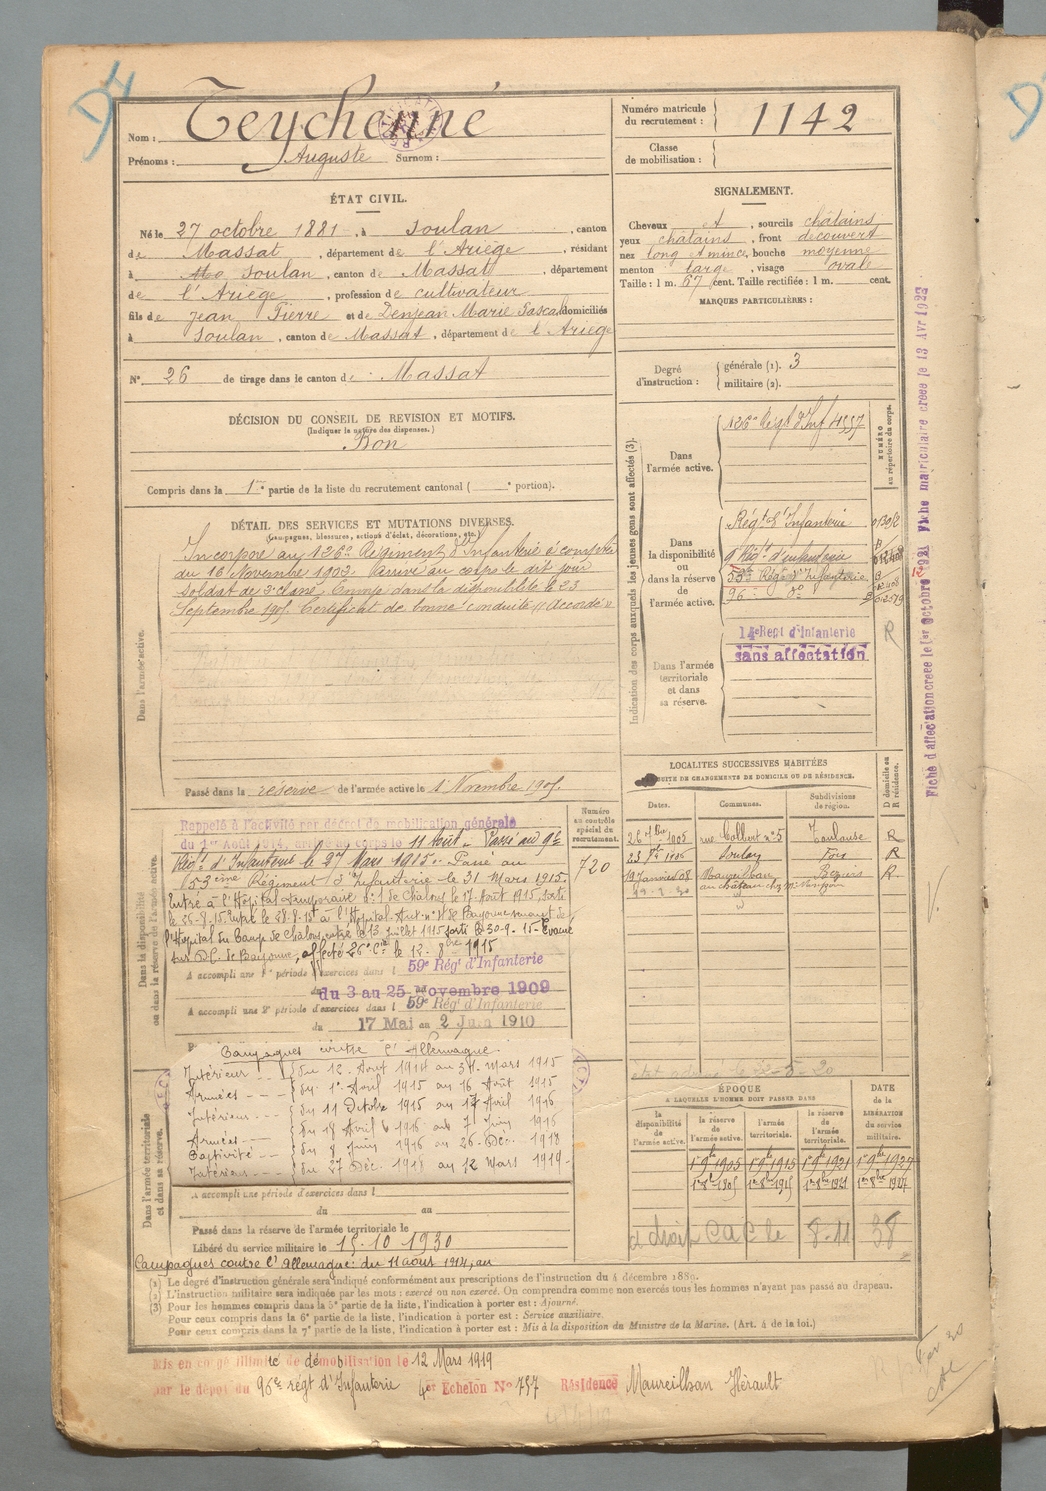 Nom : Teychenné
Prénoms : Auguste Surnom :
Numéro matricule du recrutement : 1142
Classe de mobilisation :
ÉTAT CIVIL.
Né le 27 octobre 1881, à Soulan, canton
de Massat, département de l'Ariège, résidant
à Soulan, canton de Massat, département
de l'Ariège, profession de cultivateur
fils de Jean Pierre et de Denjean Marie Pascal domiciliés
à Soulan, canton de Massat, département de l'Ariège
N° 26 de tirage dans le canton de Massat
SIGNALEMENT.
Cheveux et, sourcils châtains
yeux châtains, front découvert
nez long & mince, bouche moyenne
menton large, visage ovale
Taille : 1 m. 67 cent. Taille rectifiée : 1 m. cent.
MARQUES PARTICULIÈRES :
Degré d'instruction : générale (1). 3
militaire (2).
DÉCISION DU CONSEIL DE REVISION ET MOTIFS.
(Indiquer la nature des dispenses.)
Bon
Compris dans la 1re partie de la liste du recrutement cantonal ( e portion).
DÉTAIL DES SERVICES ET MUTATIONS DIVERSES.
(Campagnes, blessures, actions d'éclat, décorations, etc.)
Dans l'armée active.
Incorporé au 126e Régiment d'Infanterie à compter
du 16 Novembre 1902. Arrivé au corps le dit jour
soldat de 2e classe. Envoyé dans la disponibilité le 23
Septembre 1905 Certificat de bonne conduite "Accordé"
Passé dans la réserve de l'armée active le 1 Novembre 1905
Indication des corps auxquels les jeunes gens sont affectés (3).
NUMÉRO au répertoire du corps.
Dans l'armée active.
126e Régt d'Inf
Dans la disponibilité ou dans la réserve de l'armée active.
Régt d'Infanterie
9 Régt d'Infanterie
53e Régt d'Infanterie
96 - do
Dans l'armée territoriale et dans sa réserve.
14e Regt d'infanterie
sans affectation
R
LOCALITÉS SUCCESSIVES HABITÉES
PAR SUITE DE CHANGEMENTS DE DOMICILE OU DE RÉSIDENCE.
Dates. Communes. Subdivisions de région. D domicile ou R résidence.
1905 rue Colbert n° 5 Toulouse R
Soulan Foix R
19 janvier 08 Maureilhan Béziers R
au château chez Mr
Dans la disponibilité ou dans la réserve de l'armée active.
Numéro au contrôle spécial du recrutement.
720
Rappelé à l'activité par décret de mobilisation générale
du 1er Août 1914, arrivé au corps le 11 Août. Passé au 9e
Régt d'Infanterie le 27 Mars 1915. Passé au
53ème Régiment d'Infanterie le 31 Mars 1915.
Entré à l'Hôpital temporaire n° 1 de Châlons le 17 Août 1915, sorti
le 26-8-15. Entré le 28-8-15 à l'Hôpital Aux. n° de Bayonne venant de
l'Hôpital du Camp de Châlons, entré le 13 juillet 1915 sorti le 30-9-15 Evacué
sur D.C. de Bayonne, affecté 26e Cie le 12-8bre 1915
A accompli une 1re période d'exercices dans l 59e Rég' d'Infanterie
du 3 au 25 novembre 1909
A accompli une 2e période d'exercices dans l 59e Rég' d'Infanterie
du 17 Mai au 2 Juin 1910
Campagnes contre l'Allemagne.
Intérieur du 12 Août 1914 au 31 Mars 1915
Armées du 1er Avril 1915 au 16 Août 1915
Intérieur du 11 Octobre 1915 au 17 Avril 1916
Armées du 18 Avril 1916 au 7 Juin 1916
Captivité du 8 Juin 1916 au 26 Déc. 1918
Intérieur du 27 Déc. 1918 au 12 Mars 1919
Dans l'armée territoriale et dans sa réserve.
A accompli une période d'exercices dans l
du au
Passé dans la réserve de l'armée territoriale le
Libéré du service militaire le 15-10-1930
Campagnes contre l'Allemagne : du 11 août 1914, au
ÉPOQUE
A LAQUELLE L'HOMME DOIT PASSER DANS
la disponibilité de l'armée active. la réserve de l'armée active. l'armée territoriale. la réserve de l'armée territoriale.
DATE de la LIBÉRATION du service militaire.
1er 9bre 1905 1er 9bre 1915 1er 9bre 1921 1er 9bre 1927
1er 8bre 1905 1er 8bre 1915 1er 8bre 1921 1er 8bre 1927
a droit
(1) Le degré d'instruction générale sera indiqué conformément aux prescriptions de l'instruction du 4 décembre 1889.
(2) L'instruction militaire sera indiquée par les mots : exercé ou non exercé. On comprendra comme non exercés tous les hommes n'ayant pas passé au drapeau.
(3) Pour les hommes compris dans la 5e partie de la liste, l'indication à porter est : Ajourné.
Pour ceux compris dans la 6e partie de la liste, l'indication à porter est : Service auxiliaire.
Pour ceux compris dans la 7e partie de la liste, l'indication à porter est : Mis à la disposition du Ministre de la Marine. (Art. 4 de la loi.)
Mis en congé illimité de démobilisation le 12 Mars 1919
par le dépôt du 96e régt d'Infanterie 4er Echelon N° 757 Résidence Maureilhan Hérault
Fiche d'affectation créée le 1er octobre 1921 Fiche matriculaire créée le 13 Avr 1923